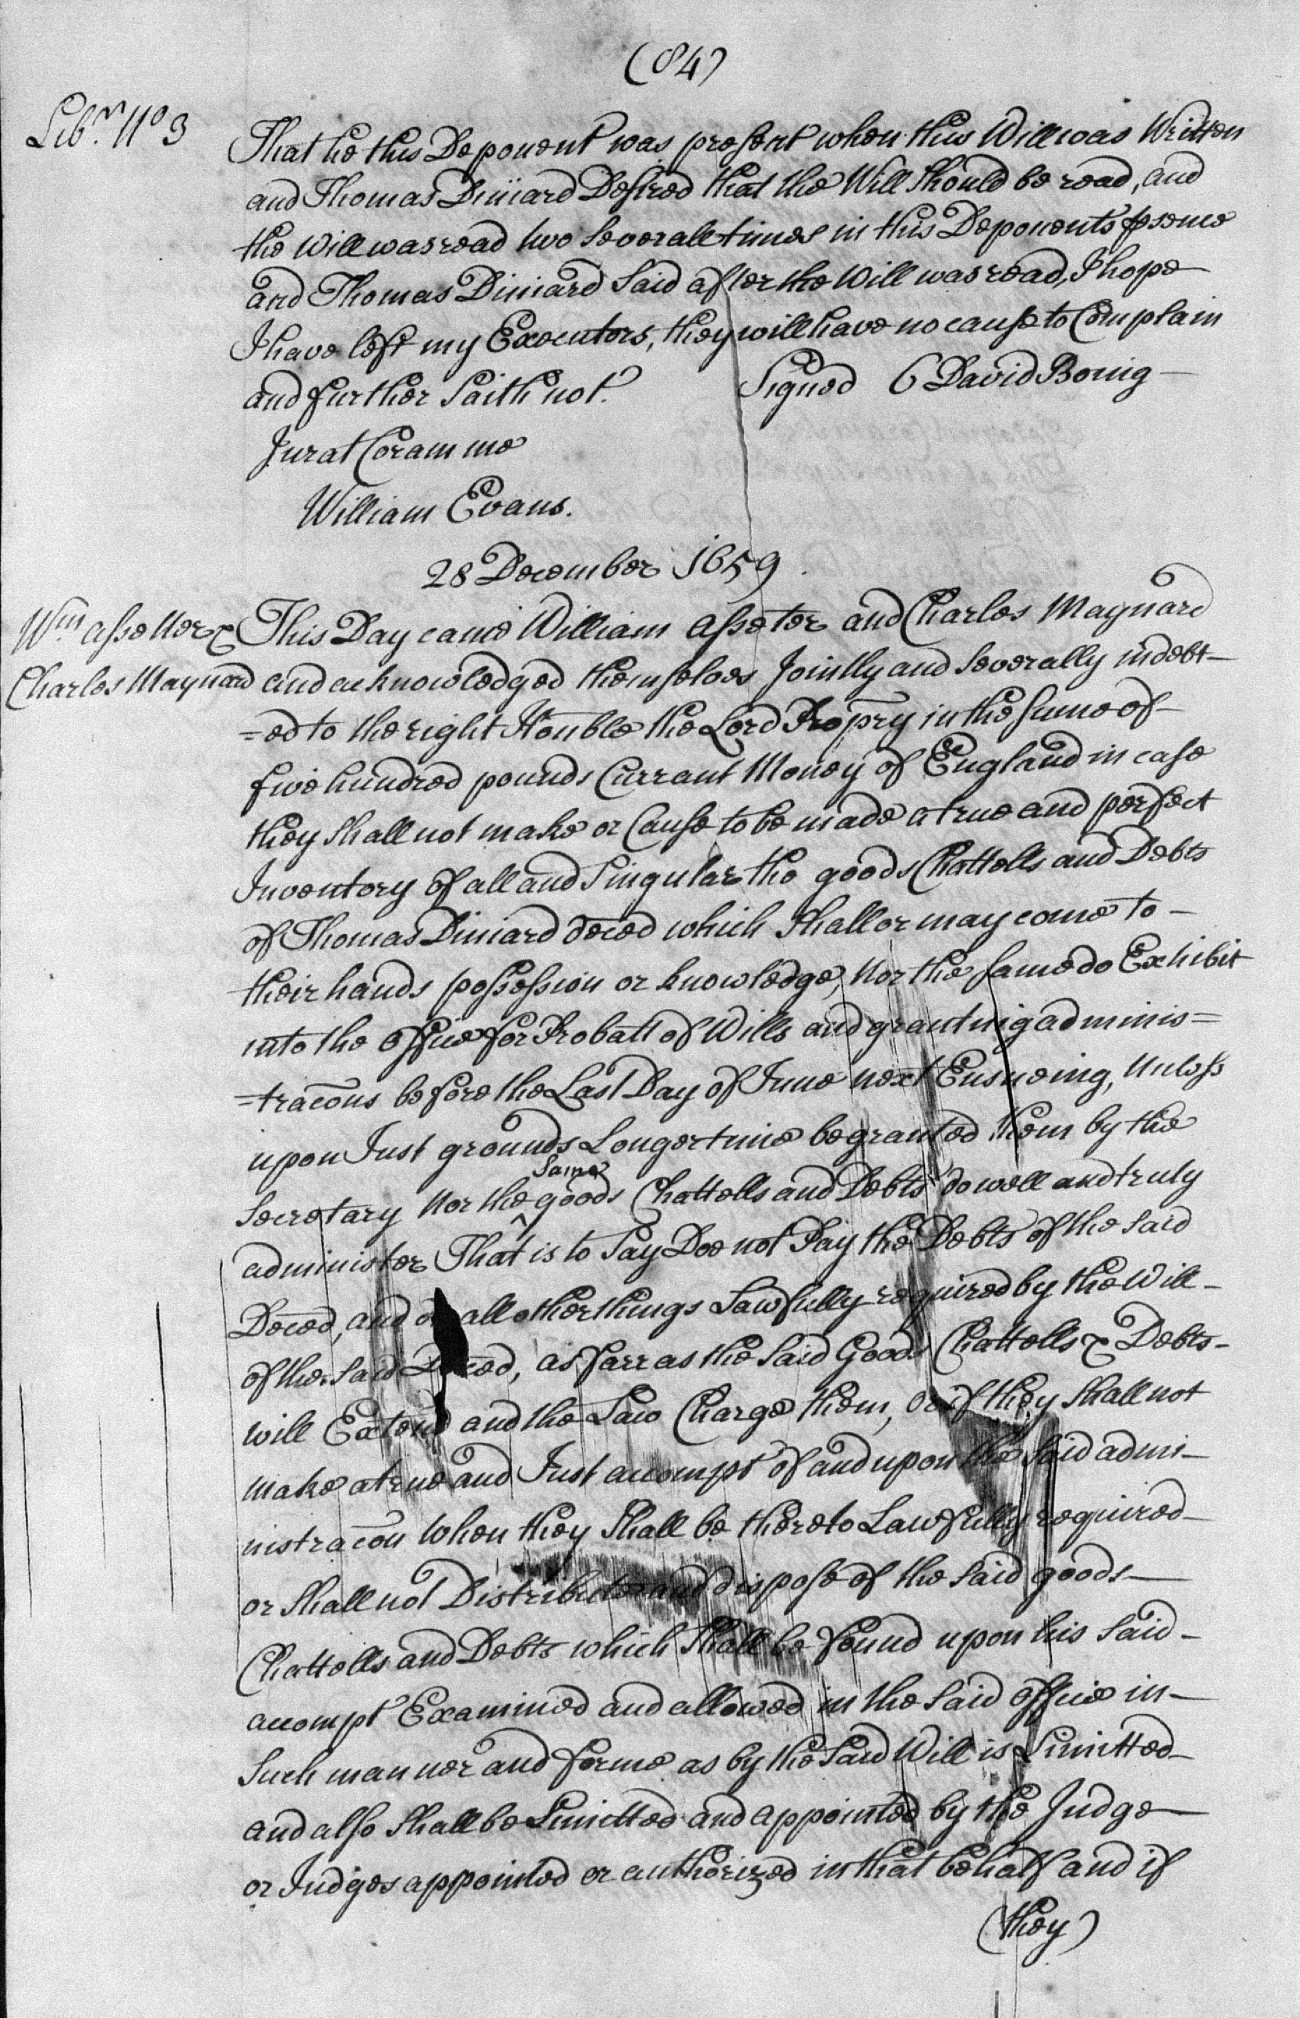 (84)
Libr. No 3
That he this Deponent was present when this Will was Written
and Thomas Diniard Desired that the Will Should be read, and
the Will was read two Severall times in this Deponents psence
and Thomas Diniard Said after the Will was read, I hope
I have left my Executors, they will have no cause to Complain
and further Saith not.
Signed David Bonig
Jurat Coram me
William Evans.
28 December 1659
Wm asseter &
Charles Maynard
This Day came William asseter and Charles Maynard
and acknowledged themselves Joinlly and Severally indebt
=ed to the right Honble the Lord Propry in the Sume of
five hundred pounds Currant Money of England in case
they Shall not make or Cause to be made a true and perfect
Inventory of all and Singular the goods Chattells and Debts
of Thomas Diniard deced which Shall or may come to
their hands possession or knowledge, Nor the Same do Exhibit
into the Office for Probatt of Wills and granting adminis=
=tracons before the Last Day of June next Ensueing, Unless
upon Just grounds Longer time be granted them by the
Secretary Nor the Same goods Chattells and Debts do well and truly
administer That is to Say Doe not Pay the Debts of the Said
Deced, and all other things Lawfully required by the Will
of the Said Deced, as farr as the Said Goods Chattells & Debts
will Extend and the Law Charge them, Or if they Shall not
make a true and Just accompt of and upon the Said admi
nistracon when they Shall be thereto Lawfully required
or Shall not Distribute and dispose of the Said goods
Chattells and Debts which Shall be found upon his Said
accompt Examined and allowed in the Said Office in
Such manner and forme as by the Said Will is Limitted
and also Shall be Limitted and appointed by the Judge
or Judges appointed or authorized in that behalf and if
(they)